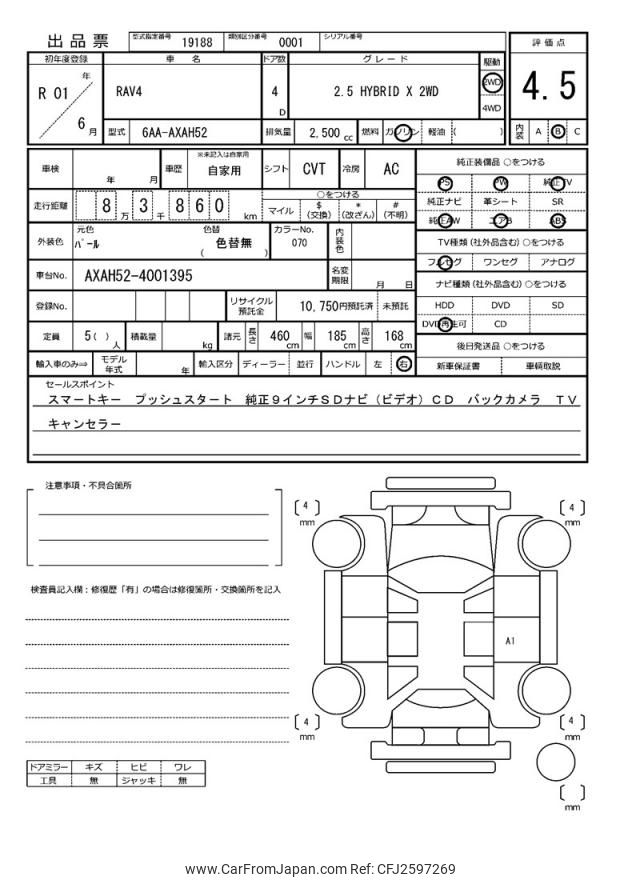 出品票 型式指定番号 19188 類別区分番号 0001 シリアル番号
評価点
4.5
内装 A B C
初年度登録 車名 ドア数 グレード 駆動
R 01 年 6 月 RAV4 4 D 2.5 HYBRID X 2WD 2WD 4WD
型式 6AA-AXAH52 排気量 2,500 cc 燃料 ガソリン 軽油 ( )
車検 年 月 車歴 ※未記入は自家用 自家用 シフト CVT 冷房 AC
走行距離 8 万 3 千 8 6 0 km
○をつける
マイル $ (交換) * (改ざん) # (不明)
外装色 元色 パール 色替 色替無 ( ) カラーNo. 070 内装色
車台No. AXAH52-4001395 名変期限 月 日
登録No. リサイクル預託金 10,750円預託済 未預託
定員 5 ( ) 人 積載量 kg 諸元 長さ 460 cm 幅 185 cm 高さ 168 cm
輸入車のみ⇒ モデル年式 年 輸入区分 ディーラー 並行 ハンドル 左 右
純正装備品 ○をつける
PS PW 純正TV
純正ナビ 革シート SR
純正AW エアB ABS
TV種類 (社外品含む) ○をつける
フルセグ ワンセグ アナログ
ナビ種類 (社外品含む) ○をつける
HDD DVD SD
DVD再生可 CD
後日発送品 ○をつける
新車保証書 車輌取説
セールスポイント
スマートキー プッシュスタート 純正9インチSDナビ(ビデオ)CD バックカメラ TV
キャンセラー
注意事項・不具合箇所
検査員記入欄：修復歴「有」の場合は修復箇所・交換箇所を記入
ドアミラー キズ ヒビ ワレ
工具 無 ジャッキ 無
[ 4 ] mm
[ 4 ] mm
A1
[ 4 ] mm
[ 4 ] mm
[ ] mm
www.CarFromJapan.com Ref: CFJ2597269